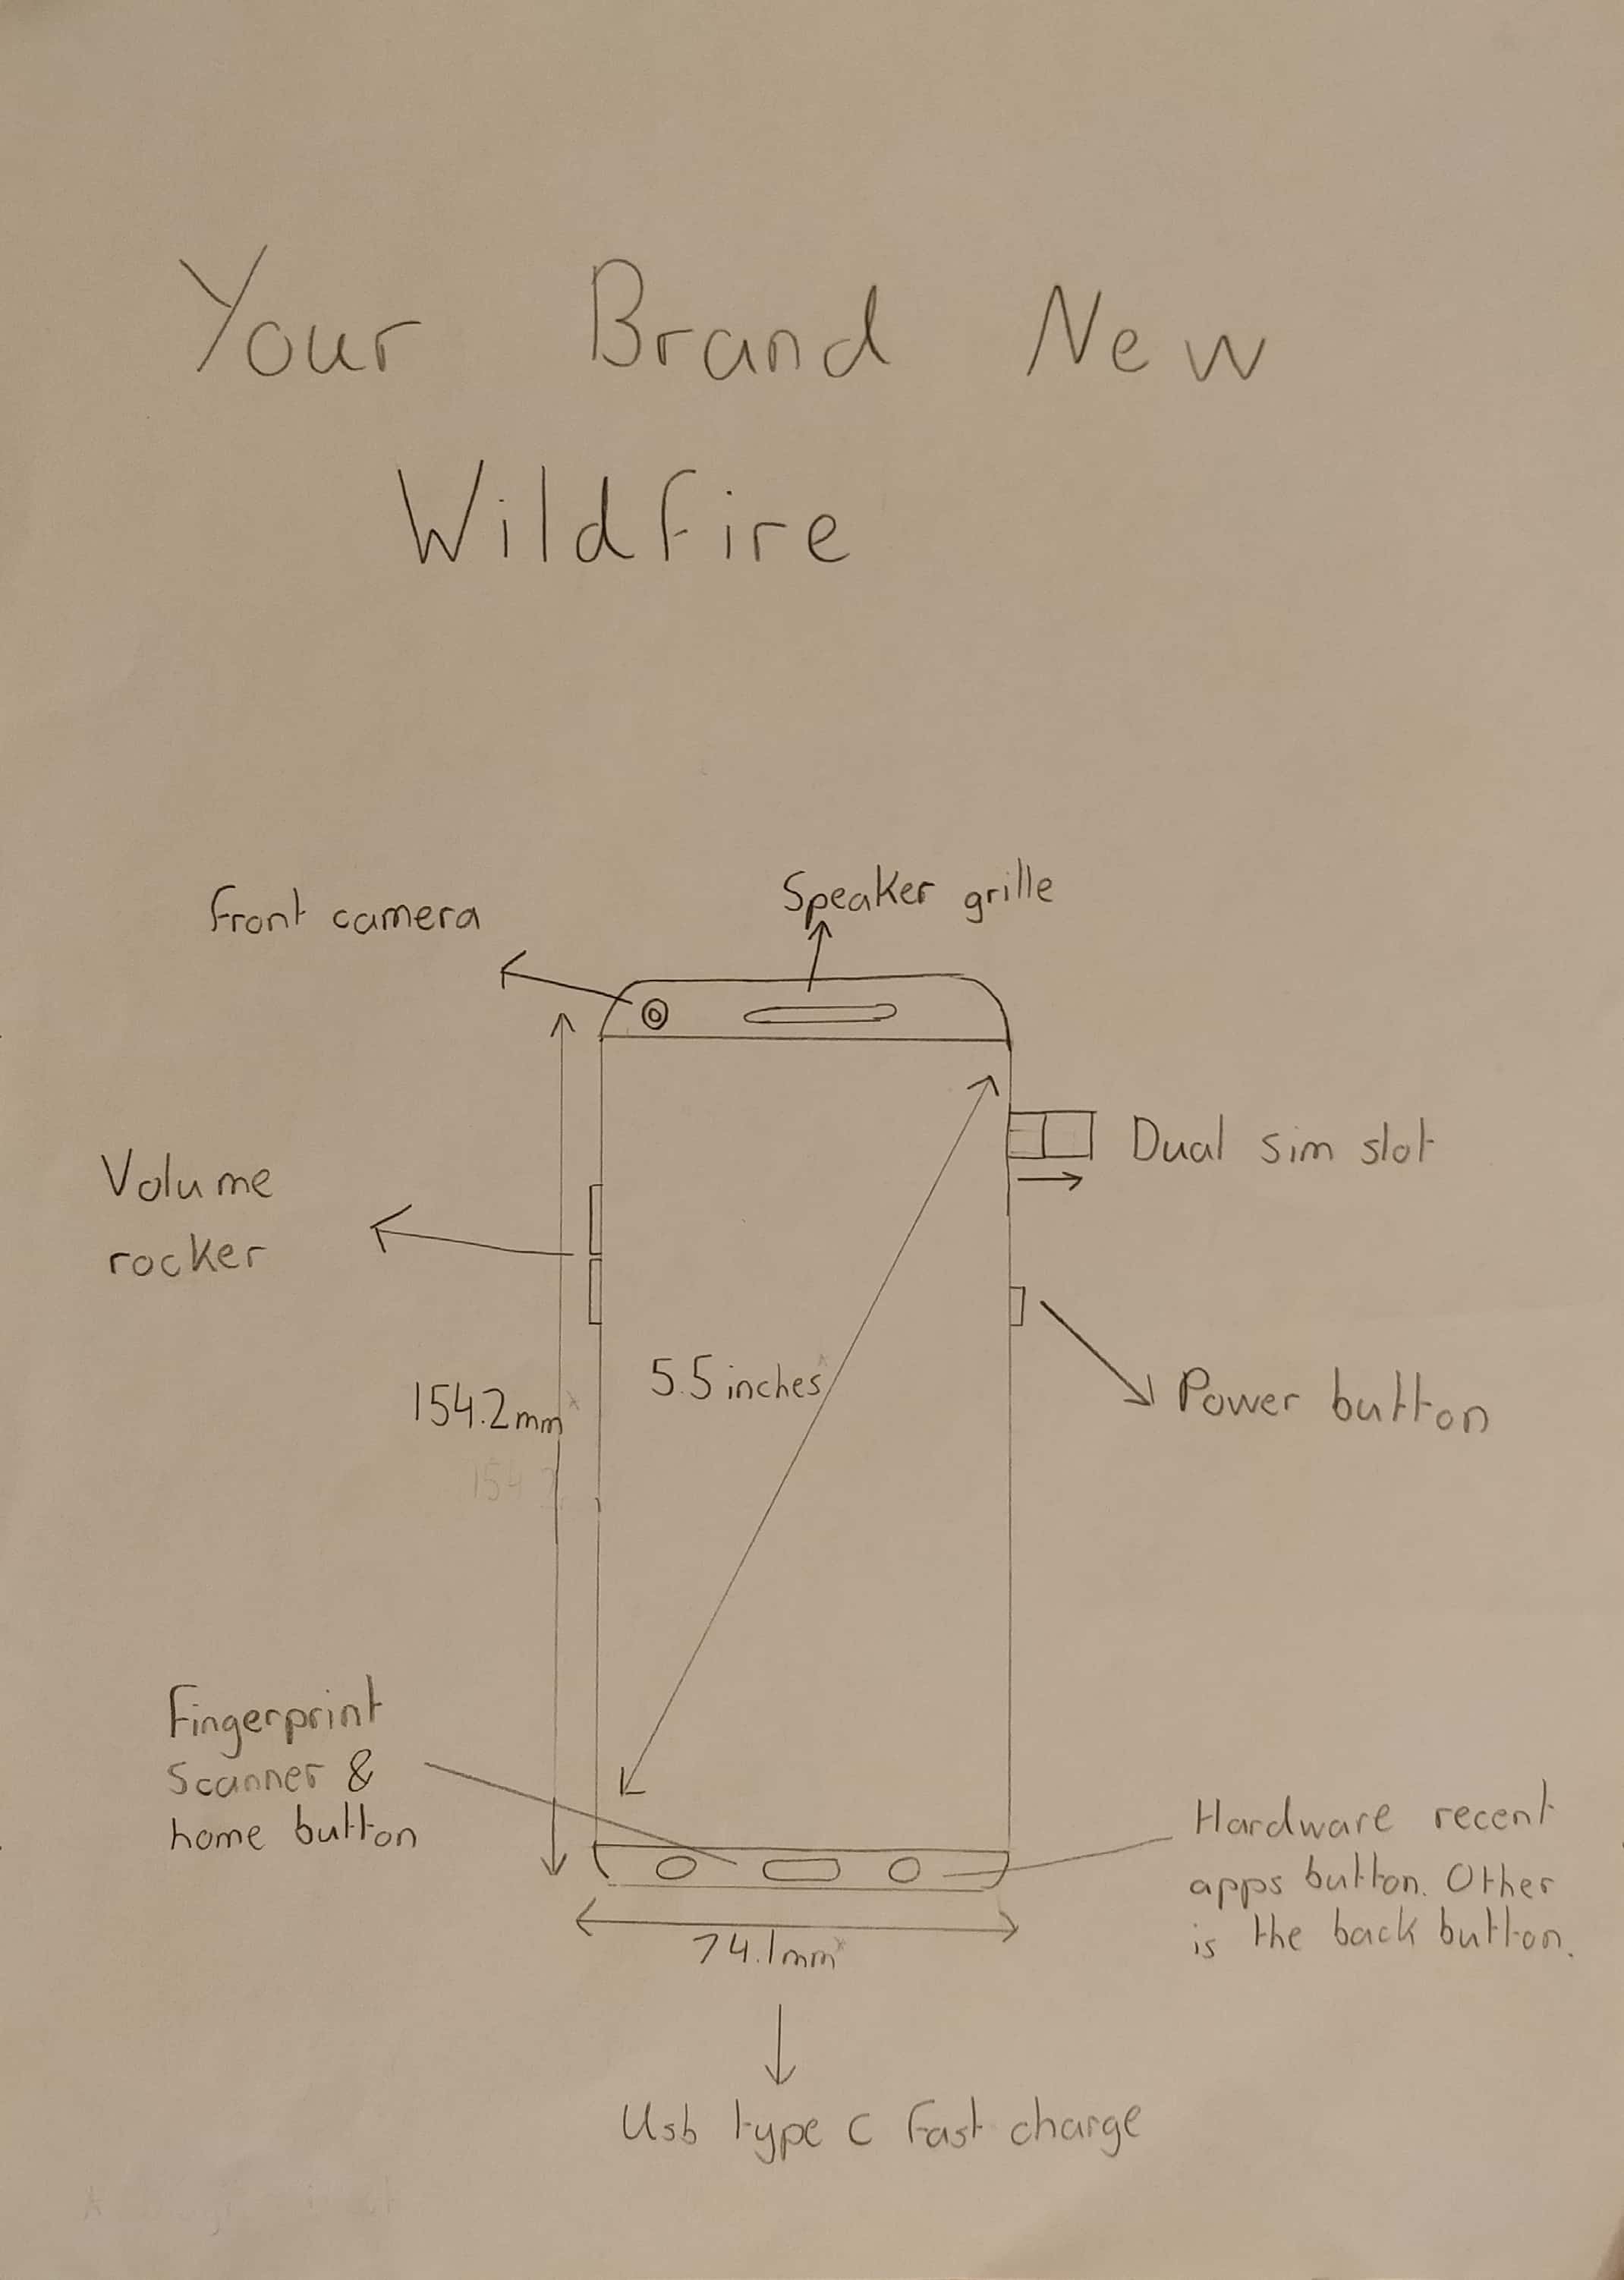 Your Brand New
Wildfire
Front camera
Speaker grille
Dual sim slot
Volume
rocker
5.5 inches*
154.2mm*
Power button
154.2
Fingerprint
Scanner &
home button
Hardware recent
apps button. Other
is the back button.
74.1mm*
Usb type C Fast charge